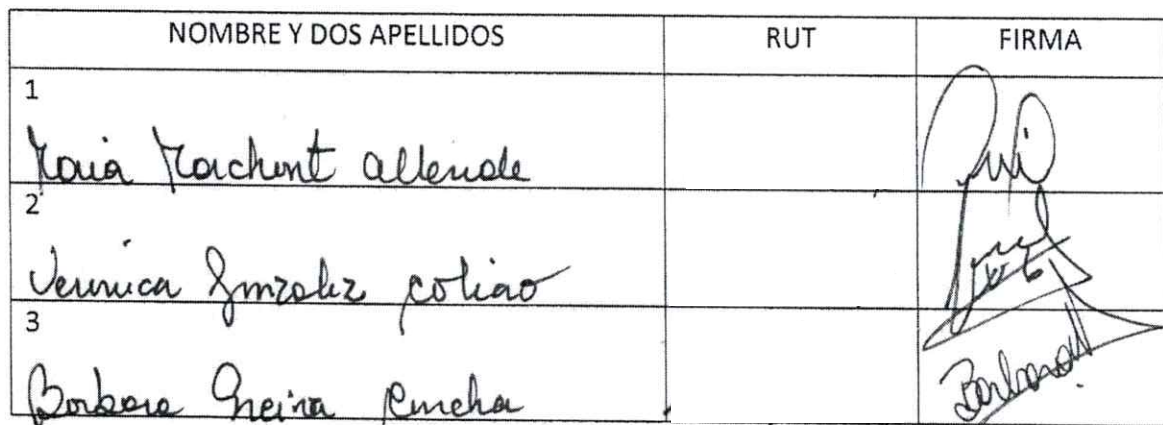 NOMBRE Y DOS APELLIDOS RUT FIRMA
1
Maria Marchant allende
2
Veronica Gonzalez
3
Barbara Neira Barbara